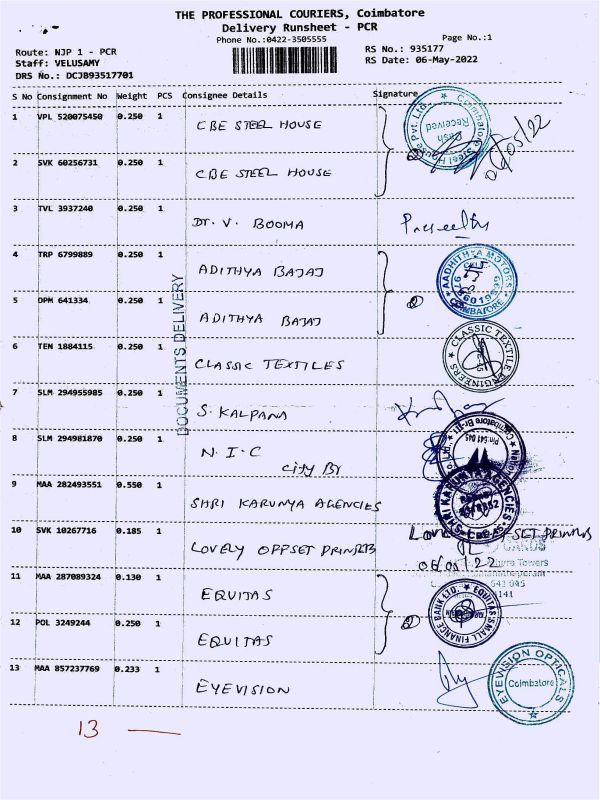 THE PROFESSIONAL COURIERS, Coimbatore
Delivery Runsheet - PCR
Phone No.:0422-3505555
Page No.:1
Route: NJP 1 - PCR
RS No.: 935177
Staff: VELUSAMY
RS Date: 06-May-2022
DRS No.: DCJB93517701
S No Consignment No Weight PCS Consignee Details Signature
1 VPL 520075450 0.250 1 CBE STEEL HOUSE
2 SVK 60256731 0.250 1 CBE STEEL HOUSE
3 TVL 3937240 0.250 1 Dr. V. BOOMA
4 TRP 6799889 0.250 1 ADITHYA BAJAJ
5 OPM 641334 0.250 1 ADITHYA BAJAJ
6 TEN 1884115 0.250 1 CLASSIC TEXTILES
7 SLM 294955985 0.250 1 S. KALPANA
8 SLM 294981870 0.250 1 N.I.C
City Br
9 MAA 282493551 0.550 1 SHRI KARUNYA AGENCIES
10 SVK 10267716 0.185 1 LOVELY OFFSET PRINTERS
11 MAA 287089324 0.130 1 EQUITAS
12 POL 3249244 0.250 1 EQUITAS
13 MAA 857237769 0.233 1 EYEVISION
DOCUMENTS DELIVERY
Coimbatore Steel House Pvt. Ltd.,
Cash
Received
06/05/22
AADHITHYA MOTORS
COIMBATORE
CLASSIC TEXTILE ENGINEERS
Pin:641 045
SHRI KARUNYA AGENCIES
OFFSET PRINTERS
06/05/22
Towers
641 045
EQUITAS SMALL FINANCE BANK LTD.
EYEVISION OPTICALS
Coimbatore
13